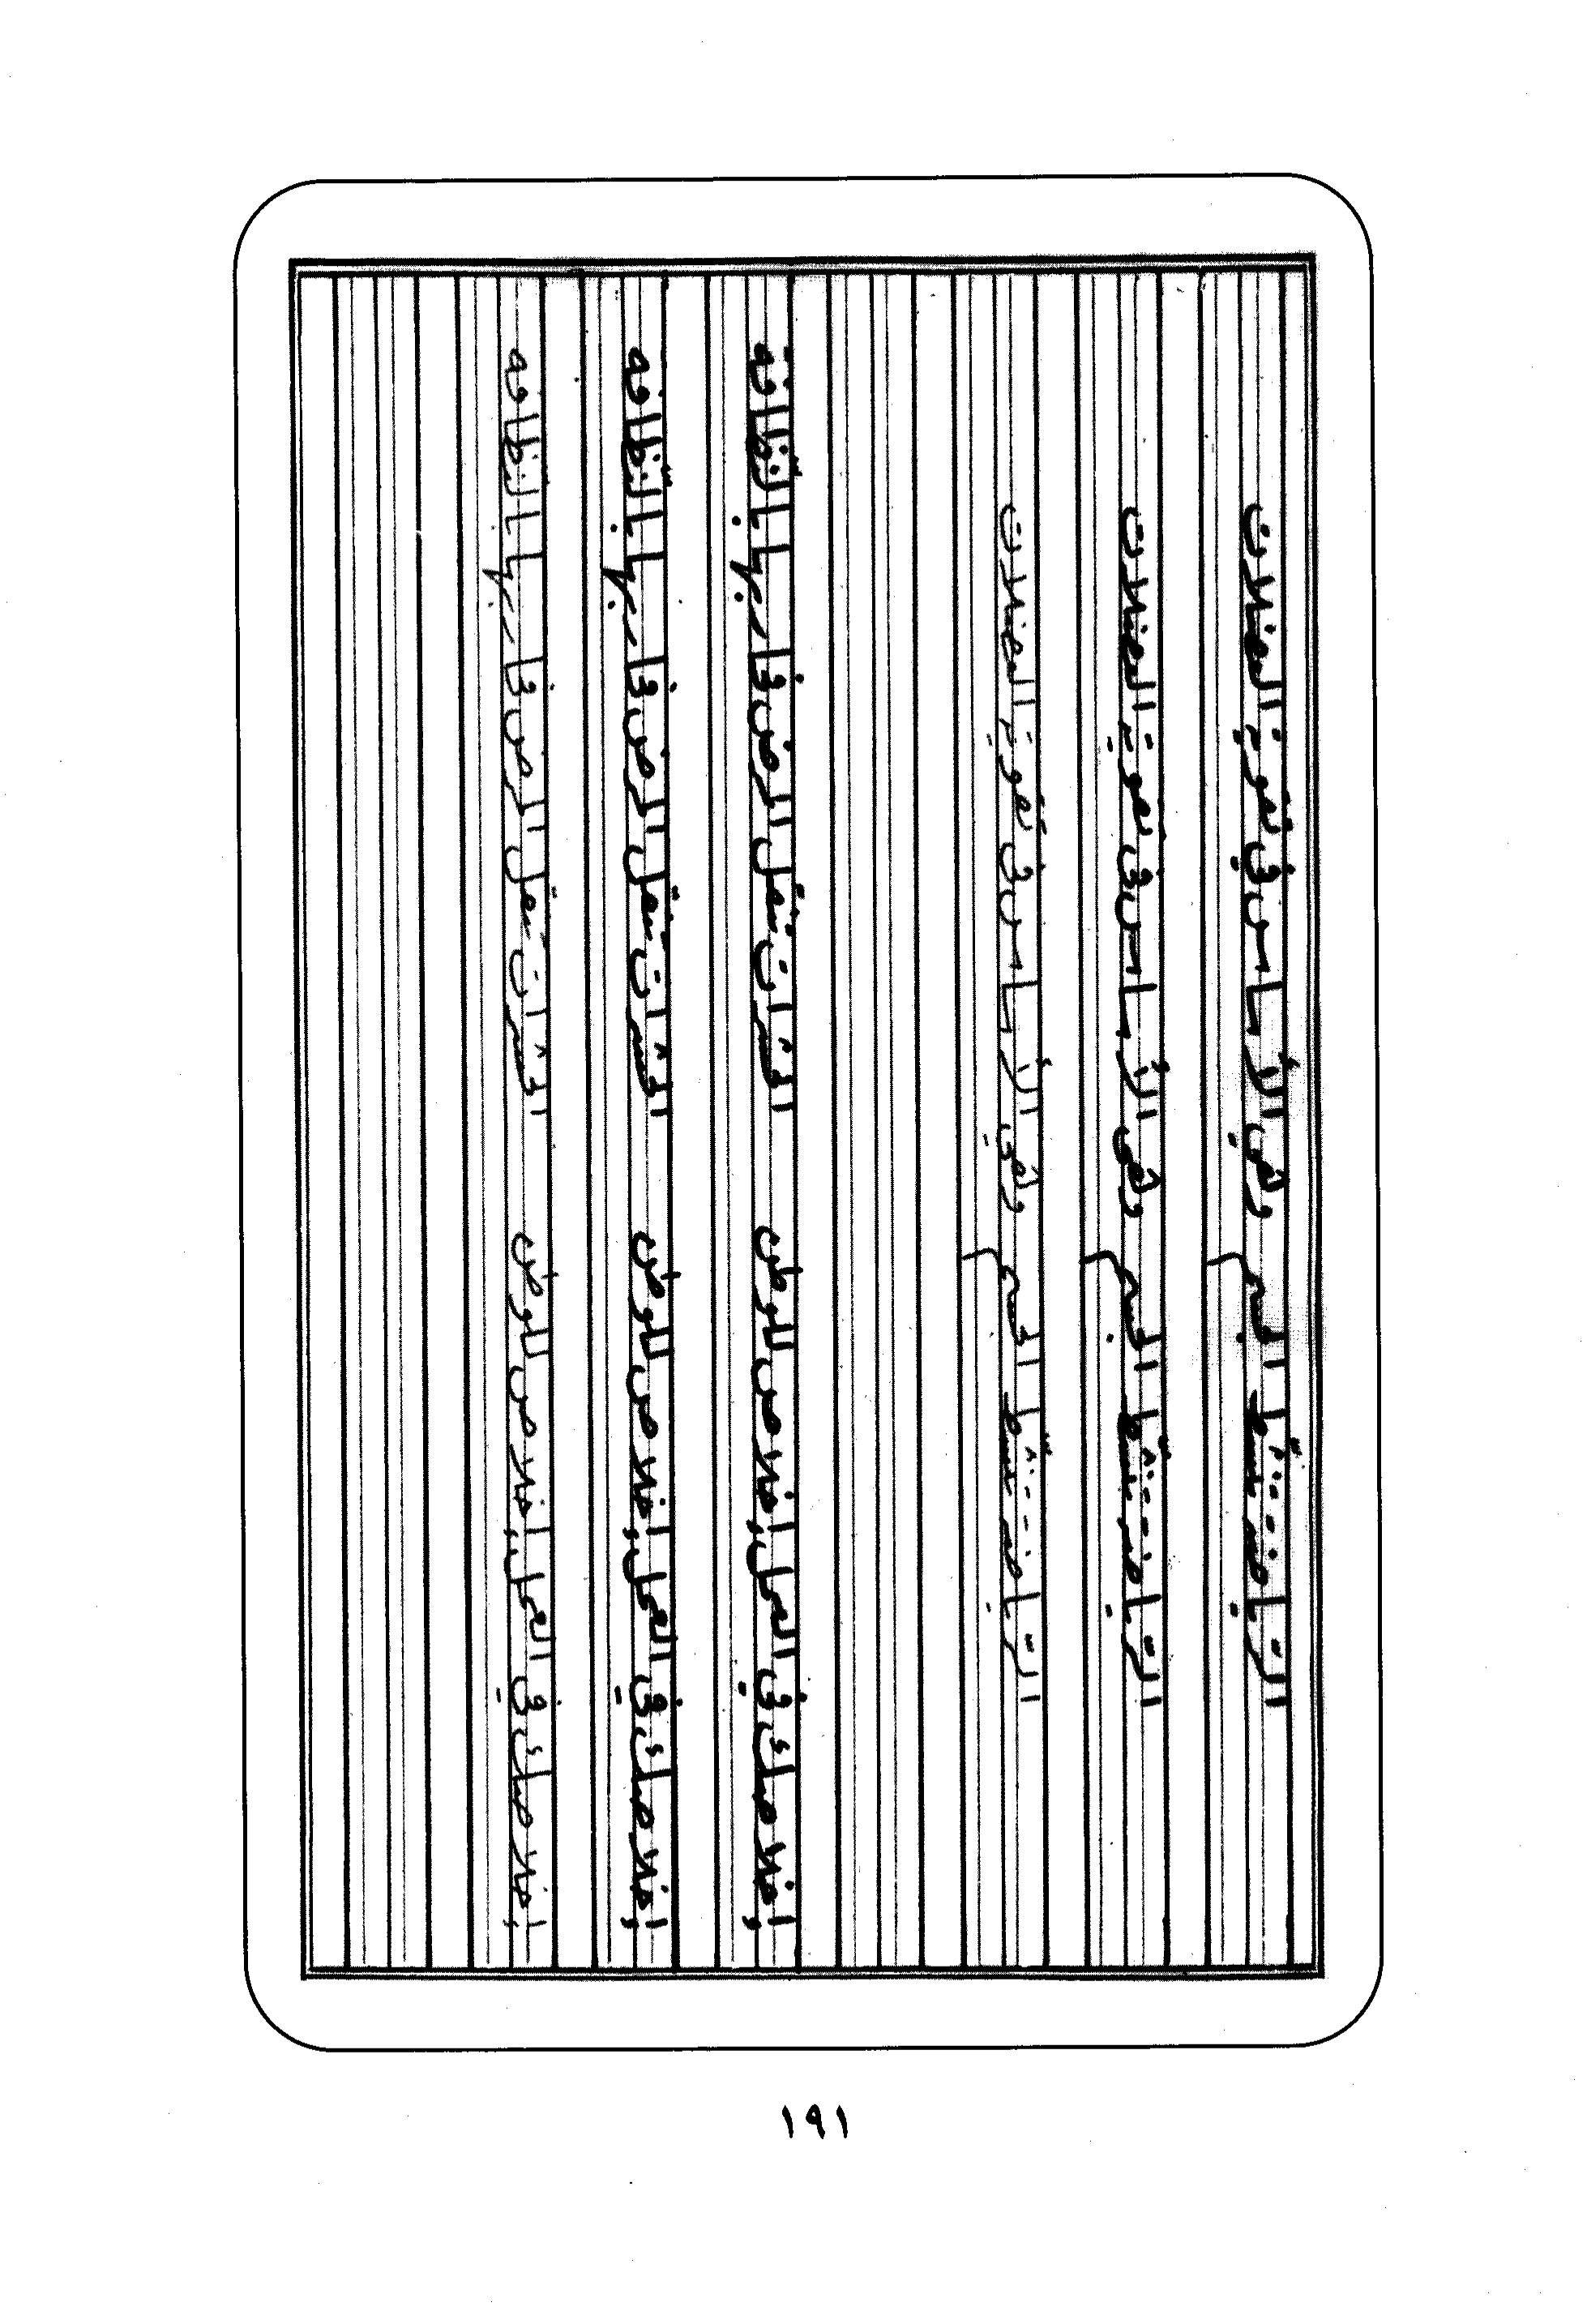 الرّياضة تنشّط الجسم وهي الأساس في تقوية العضلات
الرّياضة تنشّط الجسم وهي الأساس في تقوية العضلات
الرّياضة تنشّط الجسم وهي الأساس في تقوية العضلات
إخلاصك في العمل إخلاص للوطن الحشرات تنقل المرض فحاربها بالنّظافة
إخلاصك في العمل إخلاص للوطن الحشرات تنقل المرض فحاربها بالنّظافة
إخلاصك في العمل إخلاص للوطن الحشرات تنقل المرض فحاربها بالنّظافة
١٩١